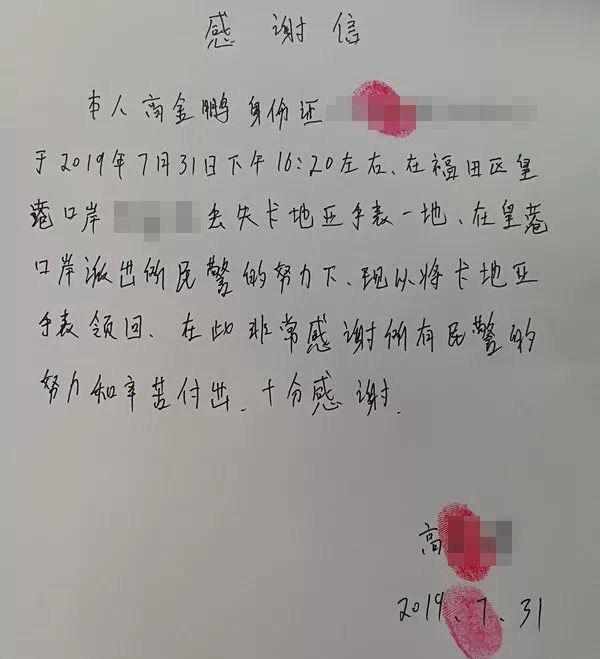 感谢信
本人高金鹏身份证
于2019年7月31日下午16:20左右、在福田区皇
岗口岸 丢失卡地亚手表一地、在皇岗
口岸派出所民警的努力下、现以将卡地亚
手表领回、在此非常感谢所有民警的
努力和辛苦付出、十分感谢.
高
2019.7.31